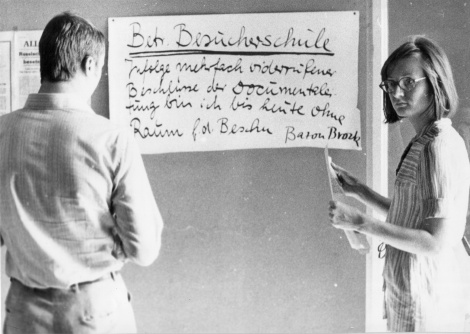 Betr. Besucherschule
Infolge mehrfach widerrufener
Beschlüsse der Documentalei
tung bin ich bis heute ohne
Raum f. d. Beschu
Bazon Brock
ALL